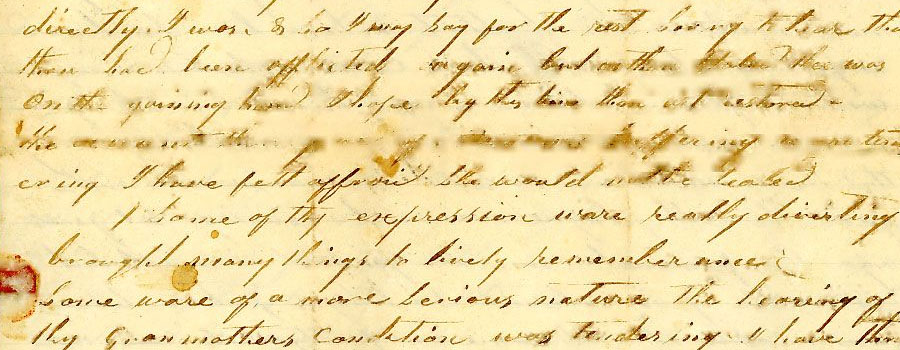 directly I was. & so I may say for the rest Sorry to hear tha
thou had been afflicted again but as thou stated thee was
on the gaining hand I hope by this time thou art restored -
the account thou of suffering
ering I have felt affraid she would not be healed
Some of thy expression ware really diverting
brought many things to lively remember ance
Some ware of a more Serious nature the hearing of
thy Granmothers Condition was tendering I have thou